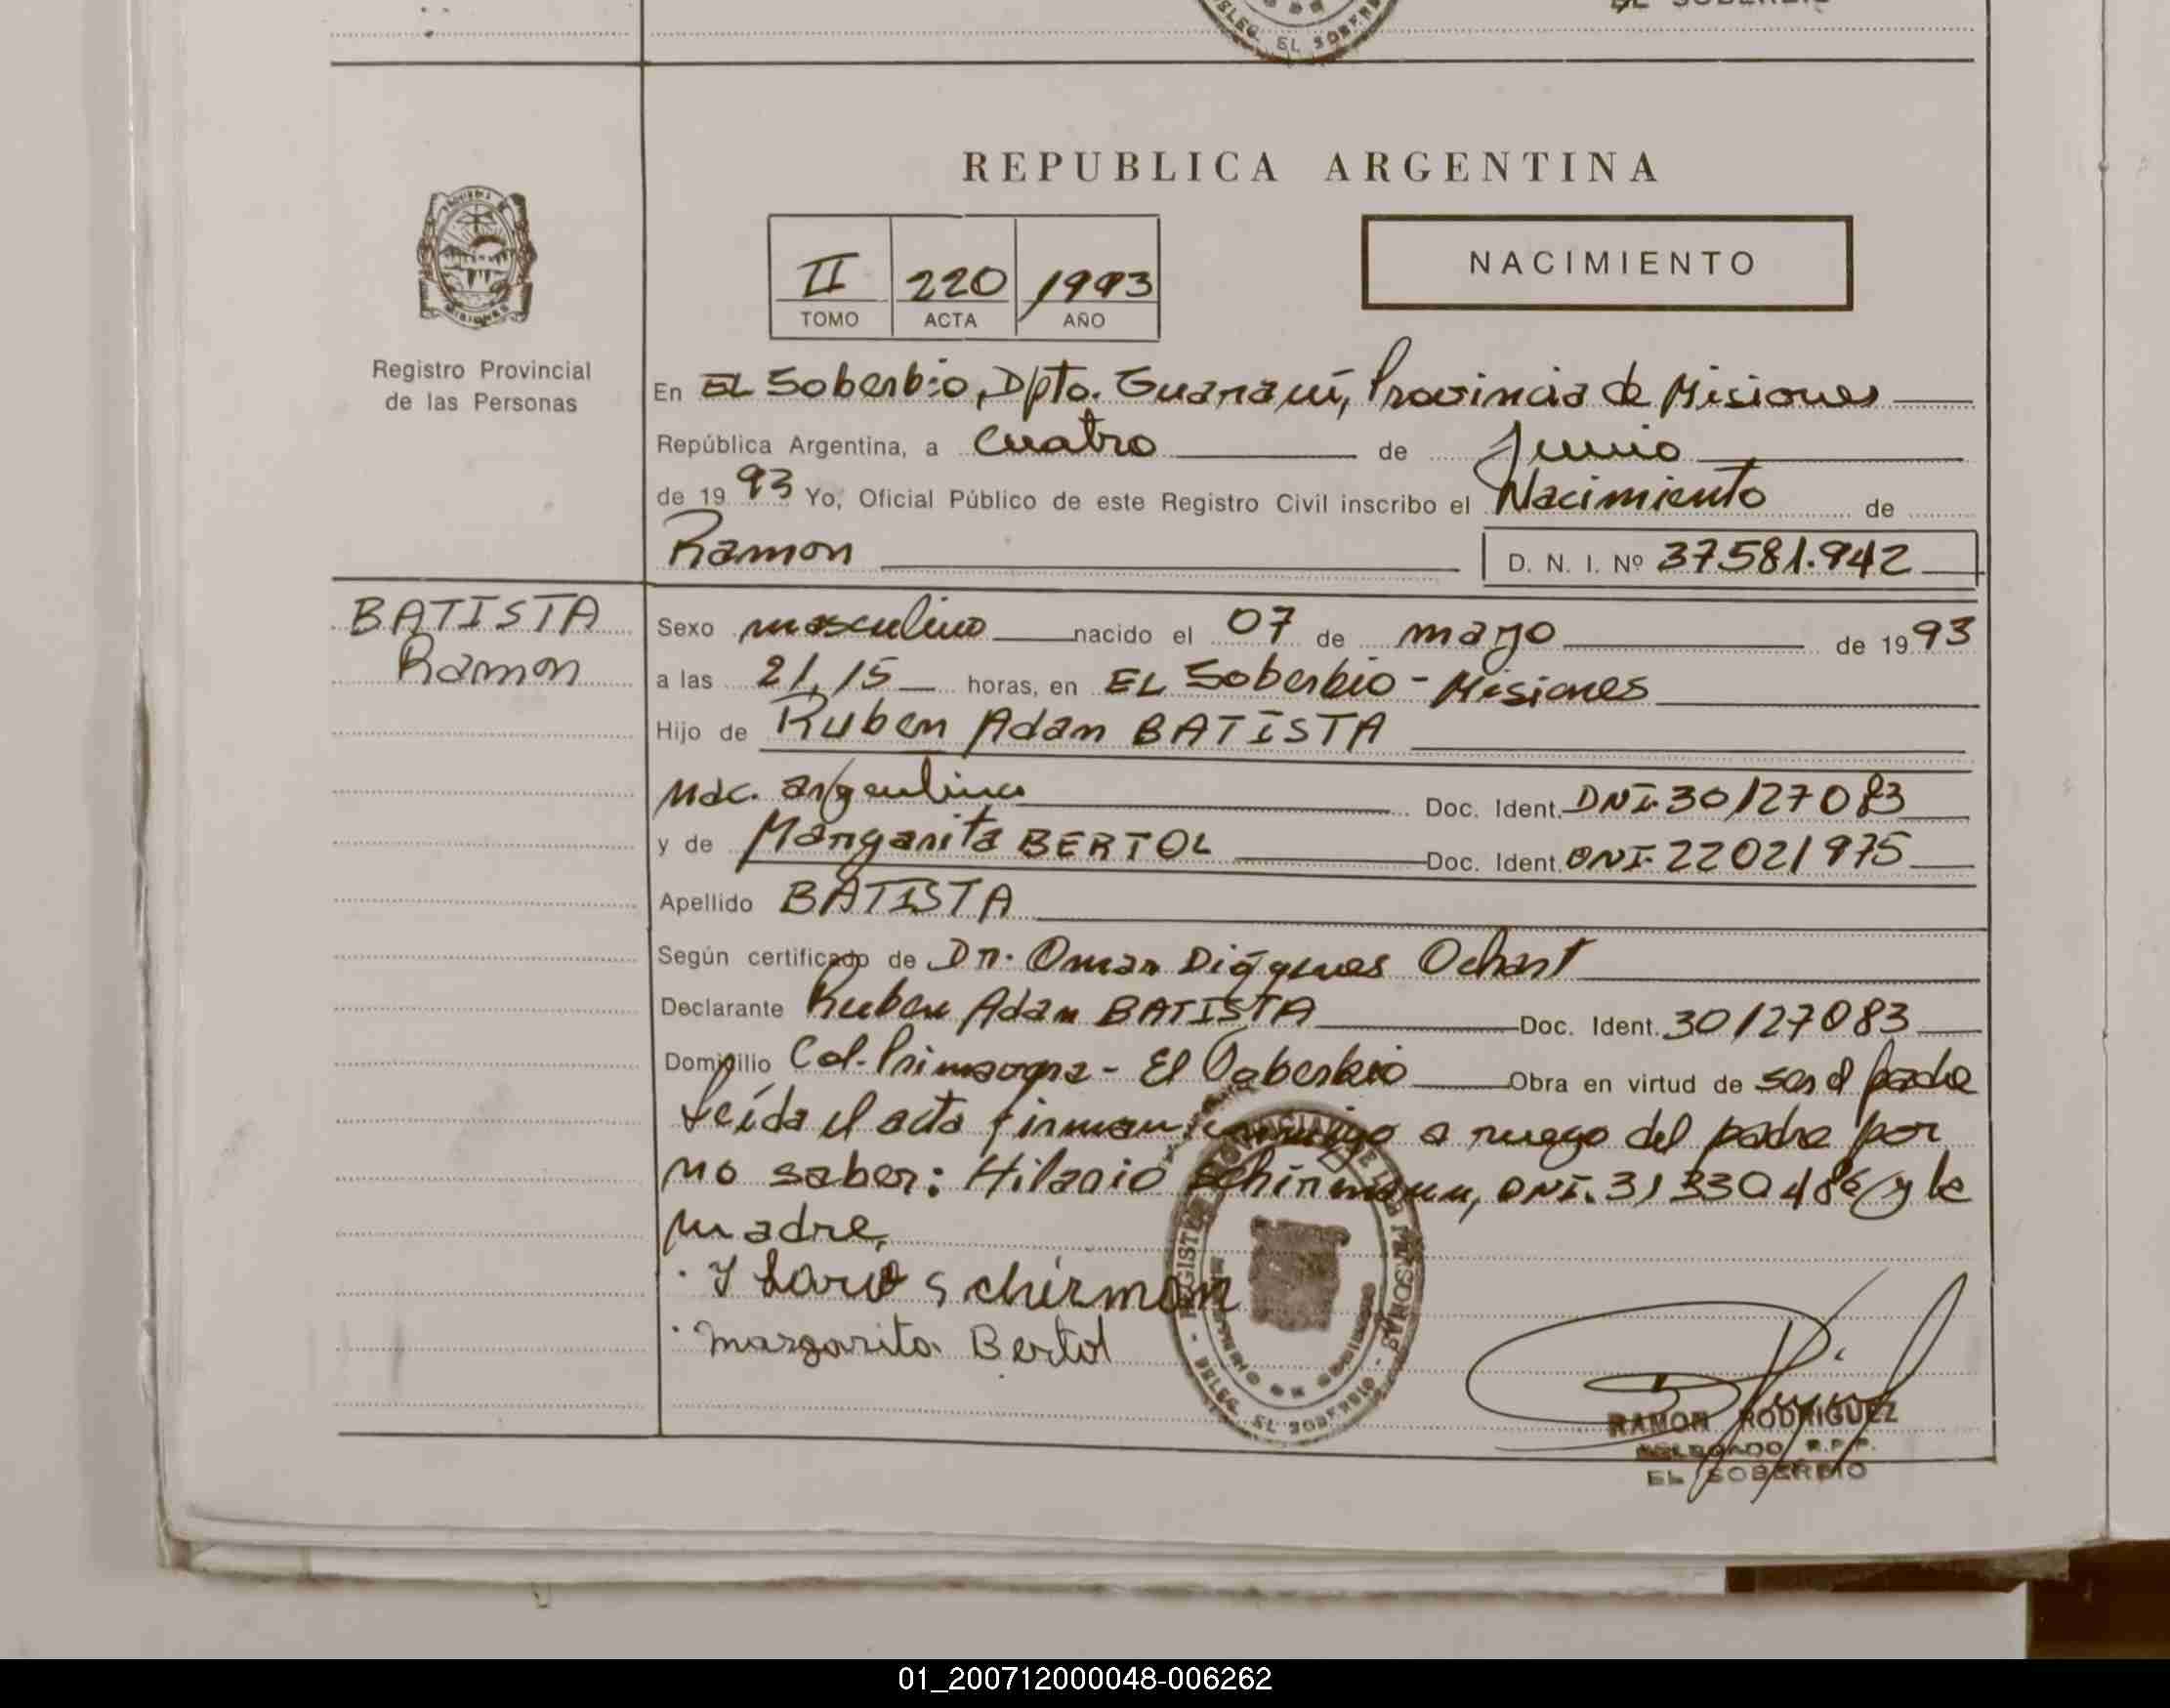 EL SOBERBIO
DELEG. EL SOBERBIO
REPUBLICA ARGENTINA
II 220 1993
TOMO ACTA AÑO
NACIMIENTO
MISIONES
Registro Provincial
de las Personas
En EL Soberbio, Dpto. Guaraní, Provincia de Misiones
República Argentina, a Cuatro de Junio
de 1993 Yo, Oficial Público de este Registro Civil inscribo el Nacimiento de
Ramon D. N. I. Nº 37.581.942
BATISTA
Ramon
Sexo masculino nacido el 07 de mayo de 1993
a las 21,15 horas, en EL Soberbio - Misiones
Hijo de Ruben Adan BATISTA
Nac. argentina Doc. Ident. DNI. 30127083
y de Margarita BERTOL Doc. Ident. DNI. 22021975
Apellido BATISTA
Según certificado de Dr. Omar Diógenes Ochast
Declarante Ruben Adan BATISTA Doc. Ident. 30127083
Domicilio Col. Primavera - El Soberbio Obra en virtud de ser el padre
Leída el acta firman conmigo a ruego del padre por
no saber: Hilario Schirmann, DNI. 31330486 y la
madre.
Ylario Schirman
Margarita Bertol
REGISTRO PROVINCIAL DE LAS PERSONAS
DELEG. EL SOBERBIO
RAMON RODRIGUEZ
DELEGADO R.P.P.
EL SOBERBIO
01_200712000048-006262